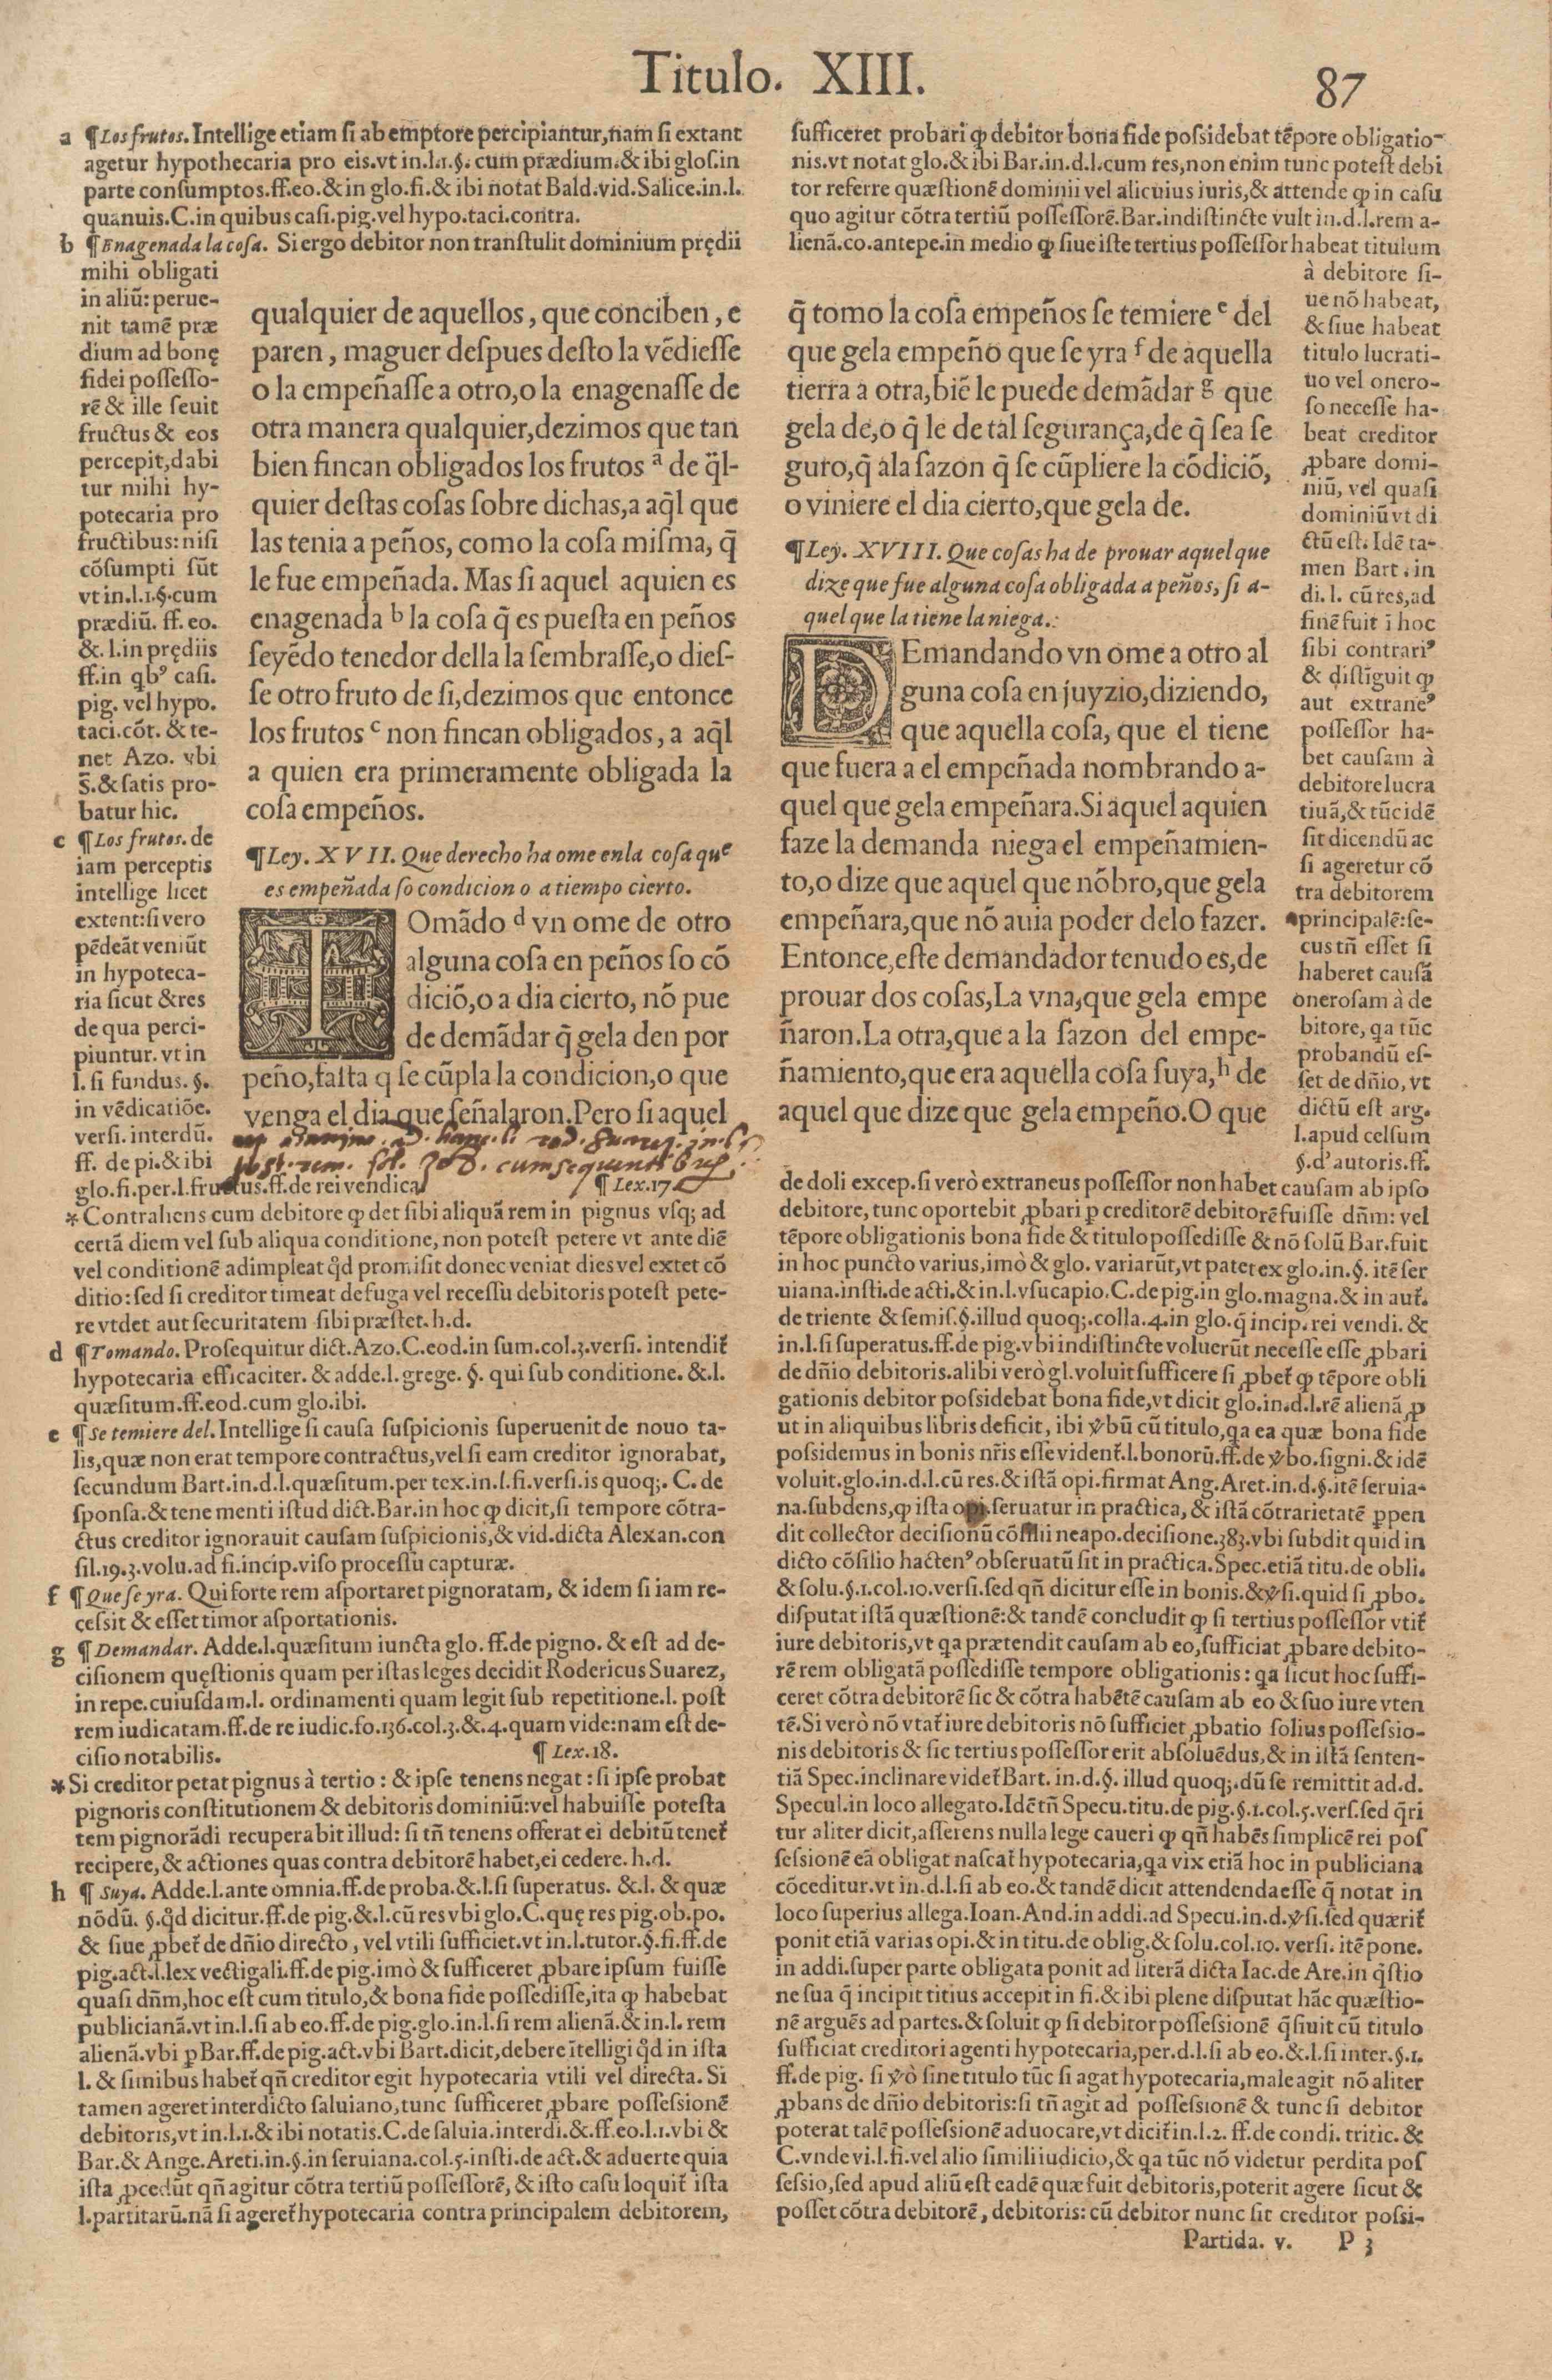 Titulo. XIII.
87
a ¶Los frutos. Intellige etiam ſi ab emptore percipiantur, nam ſi extant
agetur hypothecaria pro eis. vt in.l.1.§. cum prædium. & ibi gloſ. in
parte conſumptos. ff. eo. & in glo. fi. & ibi notat Bald. vid. Salice. in. l.
quanuis. C. in quibus caſi. pig. vel hypo. taci. contra.
b ¶Enagenada la coſa. Si ergo debitor non tranſtulit dominium prędii
mihi obligati
in aliū: perue-
nit tamē præ
dium ad bonę
fidei poſſeſſo-
rē & ille ſeuit
fructus & eos
percepit, dabi
tur mihi hy-
potecaria pro
fructibus: niſi
cōſumpti ſūt
vt in.l.1.§. cum
prædiū. ff. eo.
&. l. in prędiis
ff. in qbꝰ caſi.
pig. vel hypo.
taci. cōt. & te-
net Azo. vbi
s̄. & ſatis pro-
batur hic.
c ¶Los frutos. de
iam perceptis
intellige licet
extent: ſi vero
pēdeāt veniūt
in hypoteca-
ria ſicut & res
de qua perci-
piuntur. vt in
l. ſi fundus. §.
in vēdicatiōe.
verſi. interdū.
ff. de pi. & ibi
glo. fi. per. l. fructus. ff. de rei vendica.
qualquier de aquellos, que conciben, e
paren, maguer deſpues deſto la vēdieſſe
o la empeñaſſe a otro, o la enagenaſſe de
otra manera qualquier, dezimos que tan
bien fincan obligados los frutos a de q̄l-
quier deſtas coſas ſobre dichas, a aq̄l que
las tenia a peños, como la coſa miſma, q̄
le fue empeñada. Mas ſi aquel aquien es
enagenada b la coſa q̄ es pueſta en peños
ſeyēdo tenedor della la ſembraſſe, o dieſ-
ſe otro fruto de ſi, dezimos que entonce
los frutos c non fincan obligados, a aq̄l
a quien era primeramente obligada la
coſa empeños.
¶Ley. XVII. Que derecho ha ome enla coſa que
es empeñada ſo condicion o a tiempo cierto.
TOmādo d vn ome de otro
alguna coſa en peños ſo cō
dició, o a dia cierto, nō pue
de demādar q̄ gela den por
peño, faſta q ſe cūpla la condicion, o que
venga el dia que ſeñalaron. Pero ſi aquel
¶ Lex. 17
* Contrahens cum debitore ꝙ det ſibi aliquā rem in pignus vſq; ad
certā diem vel ſub aliqua conditione, non poteſt petere vt ante diē
vel conditionē adimpleat q̊d promiſit donec veniat dies vel extet cō
ditio: ſed ſi creditor timeat de fuga vel receſſu debitoris poteſt pete-
re vt det aut ſecuritatem ſibi præſtet. h. d.
d ¶Tomando. Proſequitur dict. Azo. C. eod. in ſum. col. 3. verſi. intendit̄
hypotecaria efficaciter. & adde. l. grege. §. qui ſub conditione. &. l.
quæſitum. ff. eod. cum glo. ibi.
e ¶Se temiere del. Intellige ſi cauſa ſuſpicionis ſuperuenit de nouo ta-
lis, quæ non erat tempore contractus, vel ſi eam creditor ignorabat,
ſecundum Bart. in. d. l. quæſitum. per tex. in. l. fi. verſi. is quoq;. C. de
ſponſa. & tene menti iſtud dict. Bar. in hoc ꝙ dicit, ſi tempore cōtra-
ctus creditor ignorauit cauſam ſuſpicionis, & vid. dicta Alexan. con
ſil. 19. 3. volu. ad fi. incip. viſo proceſſu capturæ.
f ¶Que ſe yra. Qui forte rem aſportaret pignoratam, & idem ſi iam re-
ceſsit & eſſet timor aſportationis.
g ¶Demandar. Adde. l. quæſitum iuncta glo. ff. de pigno. & eſt ad de-
ciſionem quęſtionis quam per iſtas leges decidit Rodericus Suarez,
in repe. cuiuſdam. l. ordinamenti quam legit ſub repetitione. l. poſt
rem iudicatam. ff. de re iudic. fo. 136. col. 3. &. 4. quam vide: nam eſt de-
ciſio notabilis.
¶ Lex. 18.
* Si creditor petat pignus à tertio: & ipſe tenens negat: ſi ipſe probat
pignoris conſtitutionem & debitoris dominiū: vel habuiſſe poteſta
tem pignorādi recuperabit illud: ſi tn̄ tenens offerat ei debitū tenet̄
recipere, & actiones quas contra debitorē habet, ei cedere. h. d.
h ¶ Suya. Adde. l. ante omnia. ff. de proba. &. l. ſi ſuperatus. &. l. & quæ
nōdū. §. q̊d dicitur. ff. de pig. &. l. cū res vbi glo. C. quę res pig. ob. po.
& ſiue ꝓbet̄ de dn̄io directo, vel vtili ſufficiet. vt in. l. tutor. §. fi. ff. de
pig. act. l. lex vectigali. ff. de pig. imò & ſufficeret ꝓbare ipſum fuiſſe
quaſi dn̄m, hoc eſt cum titulo, & bona fide poſſediſſe, ita ꝙ habebat
publicianā. vt in. l. ſi ab eo. ff. de pig. glo. in. l. ſi rem alienā. & in. l. rem
alienā. vbi ꝑ Bar. ff. de pig. act. vbi Bart. dicit, debere ītelligi q̊d in iſta
l. & ſimibus habet̄ qn̄ creditor egit hypotecaria vtili vel directa. Si
tamen ageret interdicto ſaluiano, tunc ſufficeret ꝓbare poſſeſſionē
debitoris, vt in. l. 1. & ibi notatis. C. de ſaluia. interdi. &. ff. eo. l. 1. vbi &
Bar. & Ange. Areti. in. §. in ſeruiana. col. 5. inſti. de act. & aduerte quia
iſta ꝓcedūt qn̄ agitur cōtra tertiū poſſeſſorē, & iſto caſu loquit̄ iſta
l. partitarū. nā ſi ageret̄ hypotecaria contra principalem debitorem,
ſufficeret probari ꝙ debitor bona fide poſsidebat tēpore obligatio-
nis. vt notat glo. & ibi Bar. in. d. l. cum res, non enim tunc poteſt debi
tor referre quæſtionē dominii vel alicuius iuris, & attende ꝙ in caſu
quo agitur cōtra tertiū poſſeſſorē. Bar. indiſtincte vult in. d. l. rem a-
lienā. co. antepe. in medio ꝙ ſiue iſte tertius poſſeſſor habeat titulum
à debitore ſi-
ue nō habeat,
& ſiue habeat
titulo lucrati-
uo vel onero-
ſo neceſſe ha-
beat creditor
ꝓbare domi-
niū, vel quaſi
dominiū vt di
ctū eſt. Idē ta-
men Bart. in
di. l. cū res, ad
finē fuit ī hoc
ſibi contrariꝰ
& diſtīguit ꝙ
aut extraneꝰ
poſſeſſor ha-
bet cauſam à
debitore lucra
tiuā, & tūc idē
ſit dicendū ac
ſi ageretur cō
tra debitorem
principalē: ſe-
cus tn̄ eſſet ſi
haberet cauſā
oneroſam à de
bitore, qa tūc
probandū eſ-
ſet de dn̄io, vt
dictū eſt arg.
l. apud celſum
§. d' autoris. ff.
q̄ tomo la coſa empeños ſe temiere e del
que gela empeño que ſe yra f de aquella
tierra a otra, biē le puede demādar g que
gela de, o q̄ le de tal ſegurança, de q̄ ſea ſe
guro, q̄ ala ſazon q̄ ſe cūpliere la cōdició,
o viniere el dia cierto, que gela de.
¶Ley. XVIII. Que coſas ha de prouar aquel que
dize que fue alguna coſa obligada a peños, ſi a-
quel que la tiene la niega.
DEmandando vn ome a otro al
guna coſa en juyzio, diziendo,
que aquella coſa, que el tiene
que fuera a el empeñada nombrando a-
quel que gela empeñara. Si aquel aquien
faze la demanda niega el empeñamien-
to, o dize que aquel que nōbro, que gela
empeñara, que nō auia poder delo fazer.
Entonce, eſte demandador tenudo es, de
prouar dos coſas, La vna, que gela empe
ñaron. La otra, que a la ſazon del empe-
ñamiento, que era aquella coſa ſuya, h de
aquel que dize que gela empeño. O que
de doli excep. ſi verò extraneus poſſeſſor non habet cauſam ab ipſo
debitore, tunc oportebit ꝓbari ꝑ creditorē debitorē fuiſſe dn̄m: vel
tēpore obligationis bona fide & titulo poſſediſſe & nō ſolū Bar. fuit
in hoc puncto varius, imò & glo. variarūt, vt patet ex glo. in. §. itē ſer
uiana. inſti. de acti. & in. l. vſucapio. C. de pig. in glo. magna. & in aut̄.
de triente & ſemiſ. §. illud quoq;. colla. 4. in glo. q̄ incip. rei vendi. &
in. l. ſi ſuperatus. ff. de pig. vbi indiſtincte voluerūt neceſſe eſſe ꝓbari
de dn̄io debitoris. alibi verò gl. voluit ſufficere ſi ꝓbet̄ ꝙ tēpore obli
gationis debitor poſsidebat bona fide, vt dicit glo. in. d. l. rē alienā ꝓ
ut in aliquibus libris deficit, ibi ꝟbū cū titulo, qa ea quæ bona fide
poſsidemus in bonis nr̄is eſſe vident̄. l. bonorū. ff. de ꝟbo. ſigni. & idē
voluit. glo. in. d. l. cū res. & iſtā opi. firmat Ang. Aret. in. d. §. itē ſeruia-
na. ſubdens, ꝙ iſta opi. ſeruatur in practica, & iſtā cōtrarietatē ꝑpen
dit collector deciſionū cōſilii neapo. deciſione. 383. vbi ſubdit quid in
dicto cōſilio hactenꝰ obſeruatū ſit in practica. Spec. etiā titu. de obli.
& ſolu. §. 1. col. 10. verſi. ſed qn̄ dicitur eſſe in bonis. & ꝟſi. quid ſi ꝓbo.
diſputat iſtā quæſtionē: & tandē concludit ꝙ ſi tertius poſſeſſor vtit̄
iure debitoris, vt qa prætendit cauſam ab eo, ſufficiat ꝓbare debito-
rē rem obligatā poſſediſſe tempore obligationis: qa ſicut hoc ſuffi-
ceret cōtra debitorē ſic & cōtra habētē cauſam ab eo & ſuo iure vten
tē. Si verò nō vtat̄ iure debitoris nō ſufficiet ꝓbatio ſolius poſſeſsio-
nis debitoris & ſic tertius poſſeſſor erit abſoluēdus, & in iſtā ſenten-
tiā Spec. inclinare videt̄ Bart. in. d. §. illud quoq;. dū ſe remittit ad. d.
Specul. in loco allegato. Idē tn̄ Specu. titu. de pig. §. 1. col. 5. verſ. ſed q̄ri
tur aliter dicit, aſſerens nulla lege caueri ꝙ qn̄ habēs ſimplicē rei poſ
ſeſsionē eā obligat naſcat̄ hypotecaria, qa vix etiā hoc in publiciana
cōceditur. vt in. d. l. ſi ab eo. & tandē dicit attendenda eſſe q̄ notat in
loco ſuperius allega. Ioan. And. in addi. ad Specu. in. d. ꝟſi. ſed quærit̄
ponit etiā varias opi. & in titu. de oblig. & ſolu. col. 10. verſi. itē pone.
in addi. ſuper parte obligata ponit ad literā dicta Iac. de Are. in q̄ſtio
ne ſua q̄ incipit titius accepit in fi. & ibi plene diſputat hāc quæſtio-
nē arguēs ad partes. & ſoluit ꝙ ſi debitor poſſeſsionē q̄ſiuit cū titulo
ſufficiat creditori agenti hypotecaria, per. d. l. ſi ab eo. &. l. ſi inter. §. 1.
ff. de pig. ſi ꝟò ſine titulo tūc ſi agat hypotecaria, male agit nō aliter
ꝓbans de dn̄io debitoris: ſi tn̄ agit ad poſſeſsionē & tunc ſi debitor
poterat talē poſſeſsionē aduocare, vt dicit̄ in. l. 2. ff. de condi. tritic. &
C. vnde vi. l. fi. vel alio ſimili iudicio, & qa tūc nō videtur perdita poſ
ſeſsio, ſed apud aliū eſt eadē quæ fuit debitoris, poterit agere ſicut &
poſſet cōtra debitorē, debitoris: cū debitor nunc ſit creditor poſsi-
Partida. v. P 3